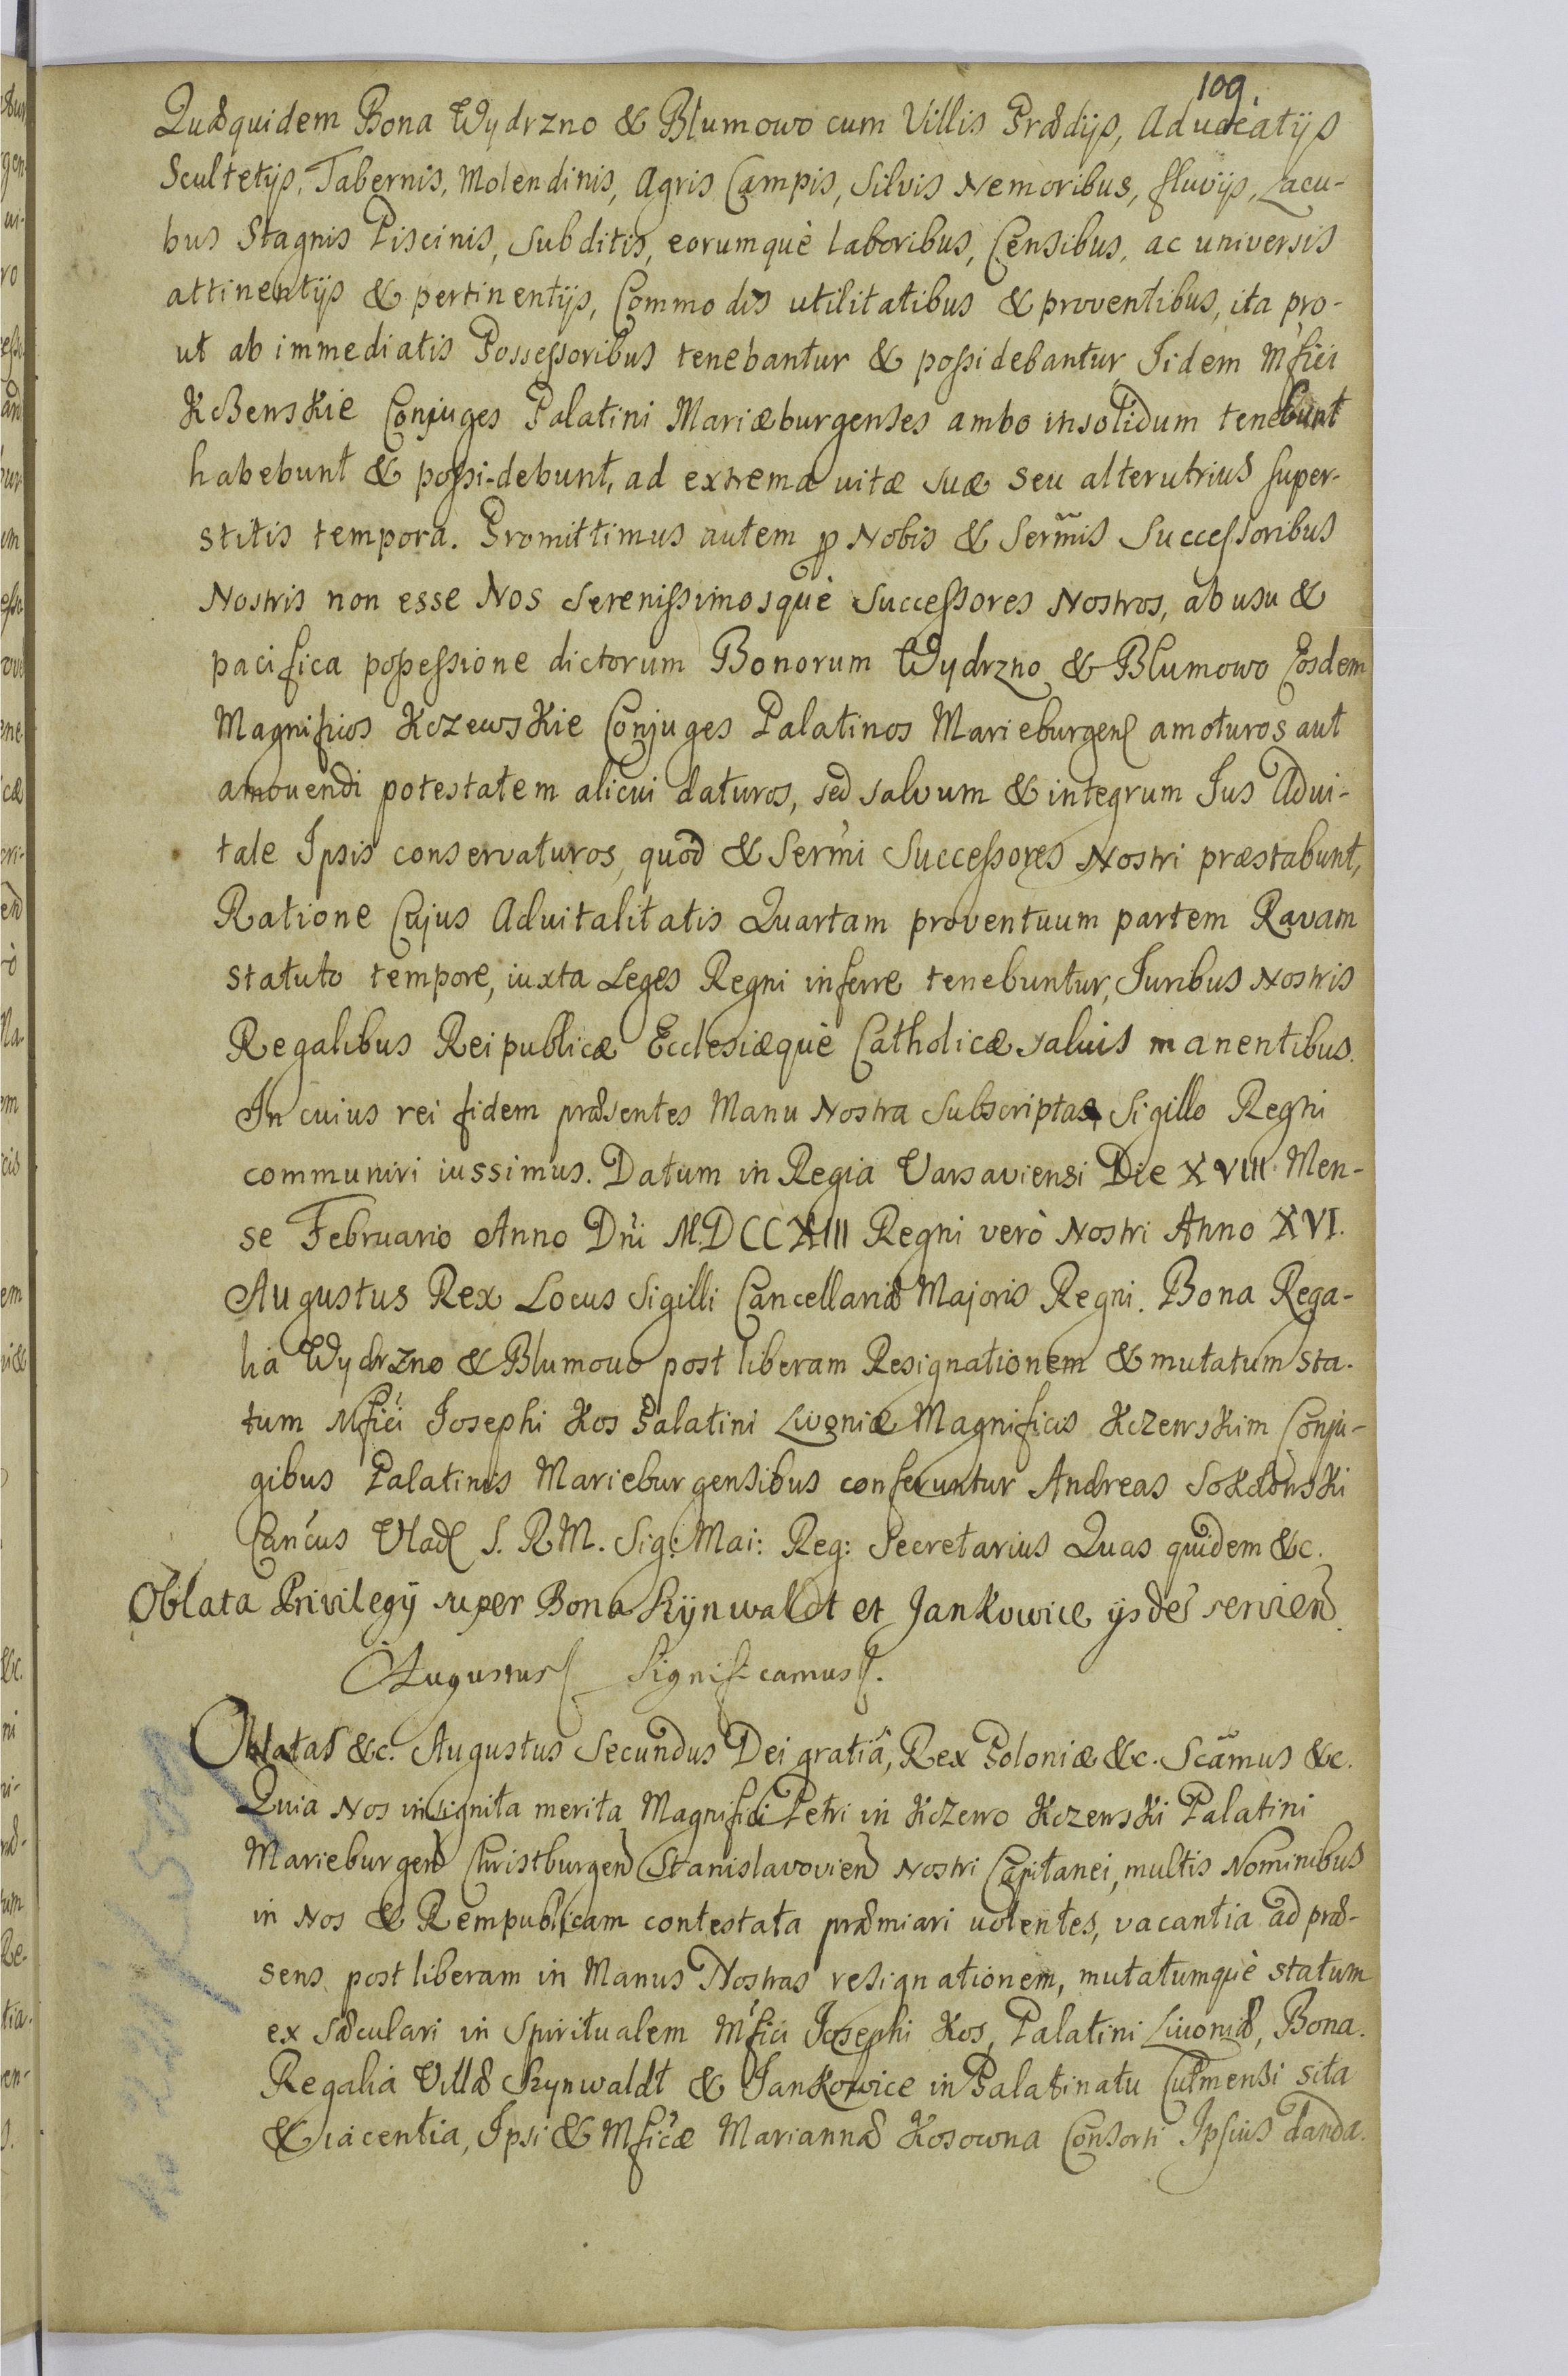 109.
Quæquidem Bona Wydrzno & Blumowo cum Villis Prædijs, Advocatijs
Scultetijs, Tabernis, Molendinis, Agris Campis, Silvis Nemoribus, fluvijs, Lacu-
bus Stagnis Piscinis, Subditis, eorumquè laboribus, Censibus, ac universis
attinentijs & pertinentijs, Commodis utilitatibus & proventibus, ita pro-
ut ab immediatis Possessoribus tenebantur & possidebantur Iidem Mfici
Kczewskie Conjuges Palatini Mariæburgenses ambo insolidum tenebunt
habebunt & possi-debunt, ad extrema vitæ suæ seu alterutrius super-
stitis tempora. Promittimus autem p Nobis & Sermis Successoribus
Nostris non esse Nos Serenissimosquè Successores Nostros, ab usu &
pacifica possessione dictorum Bonorum Wydrzno & Blumowo Eosdem
Magnificos Kczewskie Conjuges Palatinos Marieburgens amoturos aut
amovendi potestatem alicui daturos, sed salvum & integrum Jus Advi-
tale Ipsis conservaturos, quod & Sermi Successores Nostri præstabunt,
Ratione Cujus Advitalitatis Quartam proventuum partem Ravam
statuto tempore, iuxta Leges Regni inferre tenebuntur, Juribus Nostris
Regalibus Reipublicæ Ecclesiæquè Catholicæ salvis manentibus.
In cuius rei fidem præsentes Manu Nostra Subscriptas Sigillo Regni
communiri iussimus. Datum in Regia Varsaviensi Die XVIII Men-
se Februario Anno Dni M.DCCXIII Regni verò Nostri Anno XVI.
Augustus Rex Locus Sigilli Cancellariæ Majoris Regni. Bona Rega-
lia Wydrzno & Blumowo post liberam Resignationem & mutatum sta-
tum Mfici Josephi Kos Palatini Livoniæ Magnificis Kczewskim Conju-
gibus Palatinis Marieburgensibus conferuntur Andreas Sokdonski
Cancus Vlad S. R M. Sig: Mai: Reg: Secretarius Quas quidem &c.
Oblata Privilegij super Bona Rynwaldt et Jankowice ijsdē serviend.
Augustus Significamus.
Oblatas &c. Augustus Secundus Dei gratiâ, Rex Poloniæ &c. Scamus &c.
Quia Nos insignita merita Magnifici Petri in Kczewo Kczewski Palatini
Marieburgen Christburgen Stanislavovien Nostri Capitanei, multis Nominibus
in Nos & Rempublicam contestata præmiari volentes, vacantia ad præ-
sens post liberam in Manus Nostras resignationem, mutatumquè statum
ex sæculari in Spiritualem Mfici Josephi Kos, Palatini Livoniæ, Bona.
Regalia Villæ Rynwaldt & Jankowice in Palatinatu Culmensi sita
& iacentia, Ipsi & Mficæ Mariannæ Kosowna Consorti Ipsius danda.